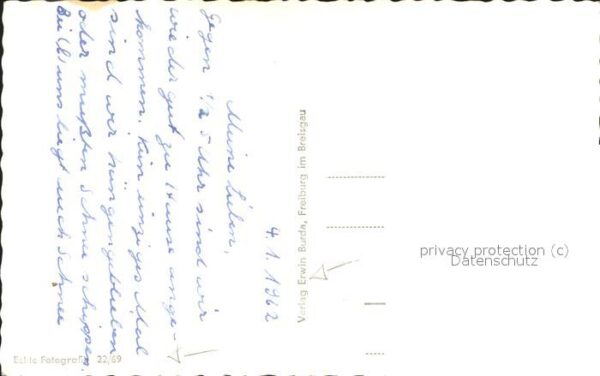 4.1.1962
Meine Lieben,
gegen 1/2 5 Uhr sind wir
wieder gut zu Hause ange-
kommen. Kein einziges Mal
sind wir hängengeblieben
oder mußten Schnee schippen.
Bei uns liegt auch Schnee
Verlag Erwin Burda, Freiburg im Breisgau
Echte Fotografie 22/69
privacy protection (c)
Datenschutz